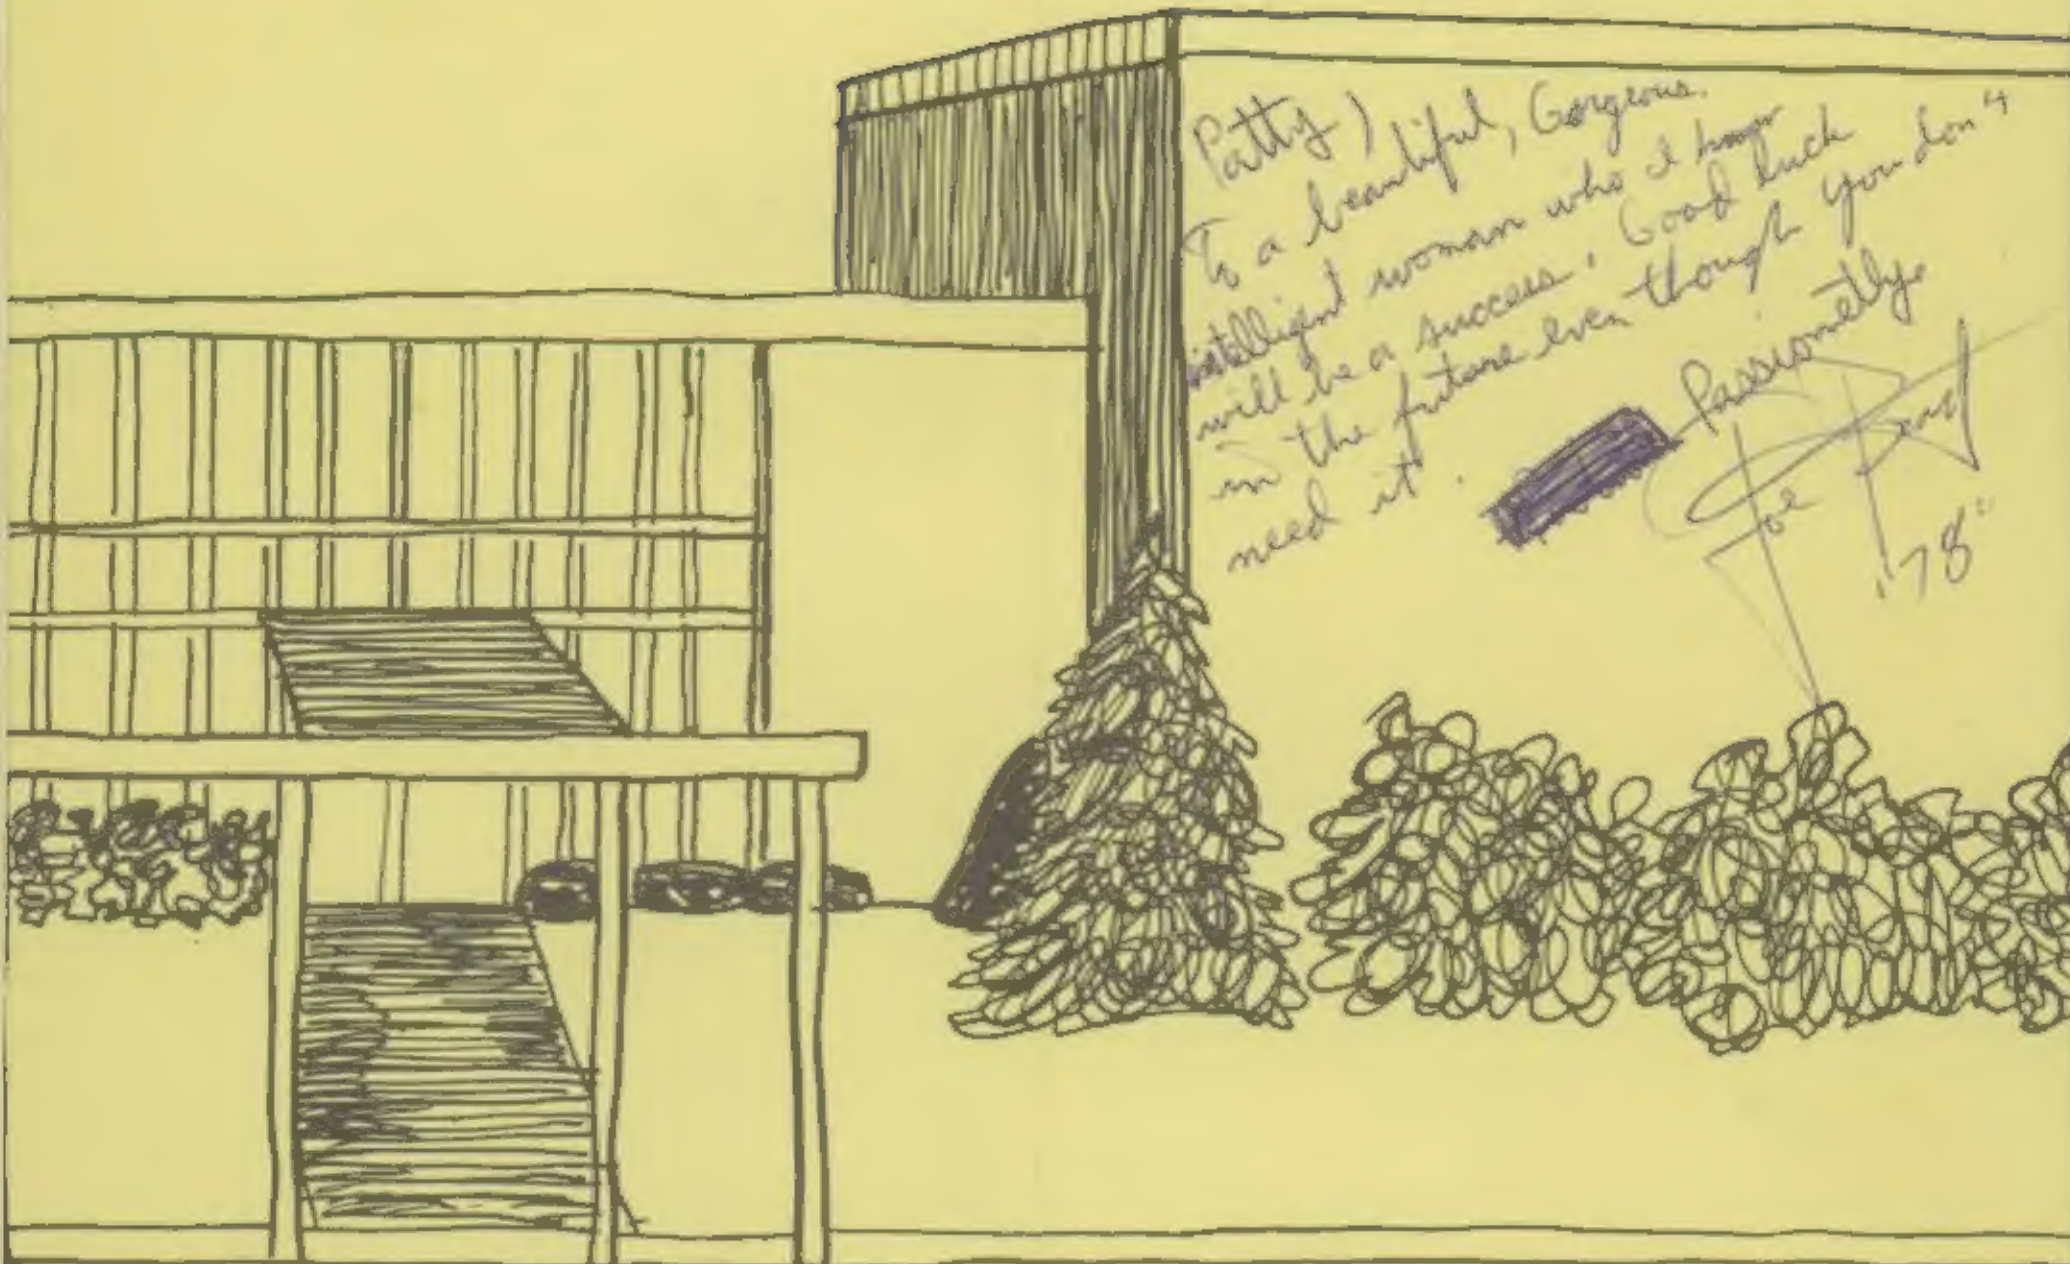 Patty)
To a beautiful, Gorgeous.
intelligent woman who I know
will be a success. Good Luck
in the future even though you don't
need it.
Passionetly
Joe
'78'